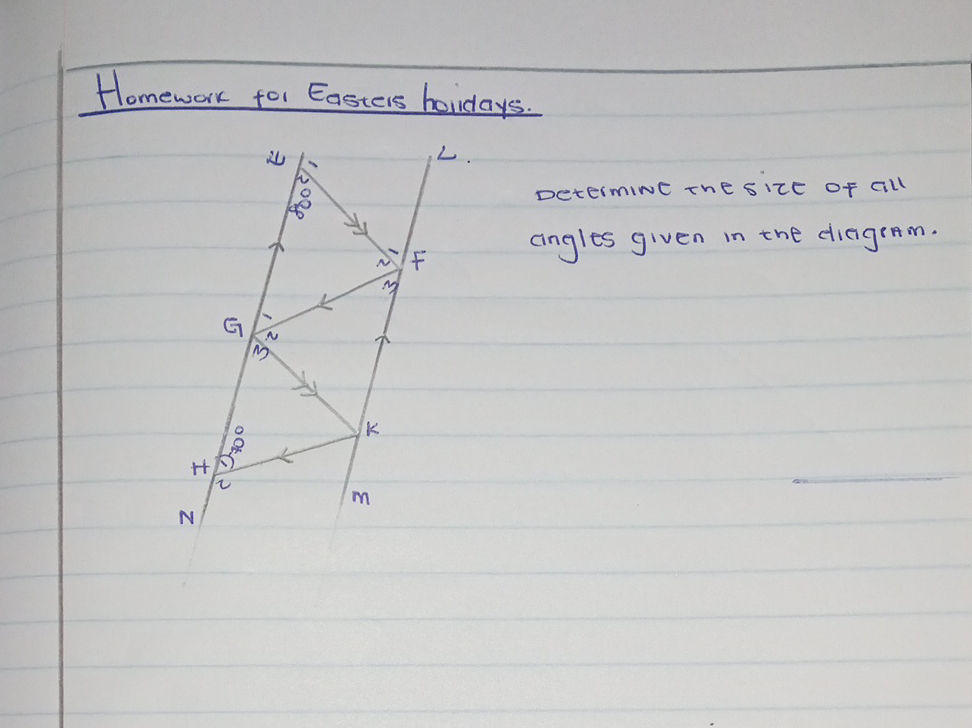 Homework for Easters holidays.
1
L.
2
80°
Determine the size of all
angles given in the diagram.
1
2
F
3
G
1
2
3
K
70°
H
1
2
M
N